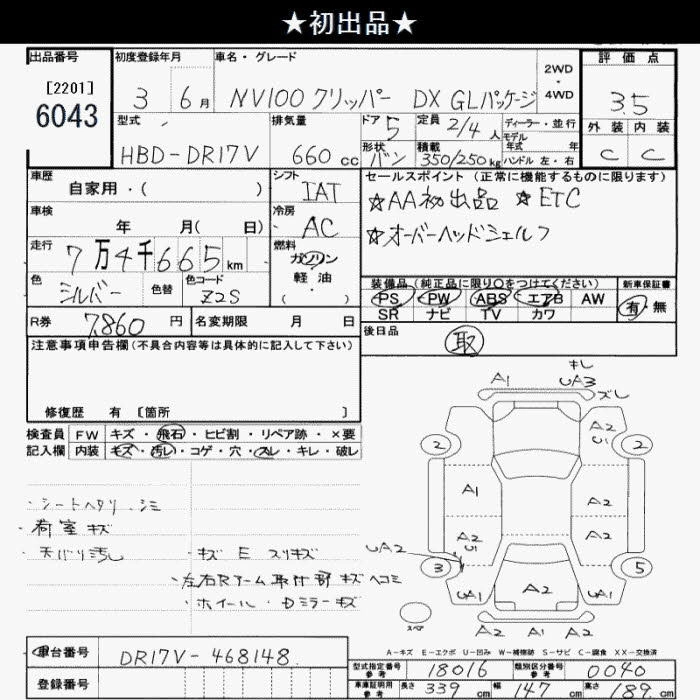 ★初出品★
出品番号
[2201]
6043
初度登録年月
3 6月
車名・グレード
NV100 クリッパー DX GLパッケージ
2WD
・
4WD
評価点
3.5
外装 内装
C C
型式
HBD-DR17V
排気量
660 cc
ドア
5
形状
バン
定員
2/4人
積載
350/250kg
ディーラー・並行
モデル
年式 年
ハンドル 左・右
車歴
自家用・( )
車検
年 月( 日)
走行
7万4千665km
色
シルバー
色替
色コード
Z2S
シフト
IAT
冷房
AC
燃料
ガソリン
軽油
( ・ )
セールスポイント (正常に機能するものに限ります)
☆AA初出品 ☆ETC
☆オーバーヘッドシェルフ
装備品(純正品に限り○をつけてください)
PS PW ABS エアB AW
SR ナビ TV カワ
新車保証書
有・無
R券
7,860 円
名変期限 月 日
後日品
取
注意事項申告欄(不具合内容等は具体的に記入して下さい)
修復歴 有 〔箇所 〕
検査員 FW キズ・飛石・ヒビ割・リペア跡・×要
記入欄 内装 キズ・汚レ・コゲ・穴・スレ・キレ・破レ
・シートヘタリ・シミ
・荷室キズ
・天バリ汚レ
・キズ E スリキズ
・左右Rアーム取付部キズヘコミ
・ホイール・Dミラーキズ
A1
キレ
UA3
ズレ
2
A2
U1
2
A1
A2
UA2
A2
U1
A2
3
5
UA1
A2
UA2
スペア
A2 A1 A2
A-キズ E-エクボ U-凹み W-補修跡 S-サビ C-腐食 XX-交換済
車台番号
DR17V-468148
登録番号
型式指定番号
参考
18016
類別区分番号
参考
0040
車庫証明用
参考
長さ 339 cm 幅 147 cm 高さ 189 cm